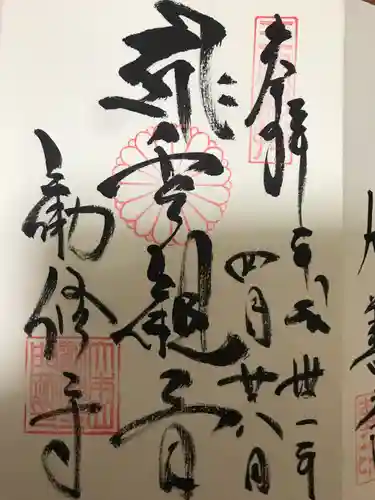 奉拝
平成卅一年
四月廿八日
飛雲観音
勧修寺